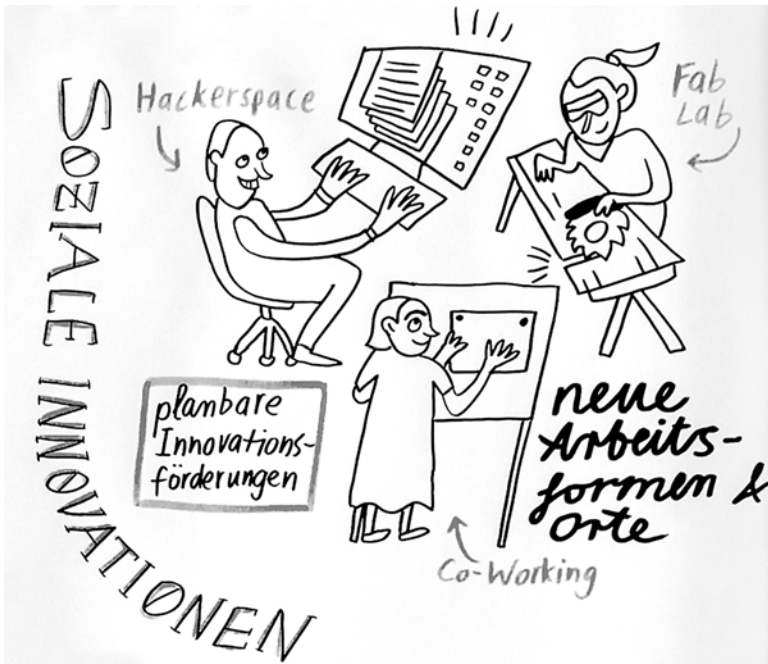 SOZIALE INNOVATIONEN
Hackerspace
Fab
Lab
planbare
Innovations-
förderungen
neue
Arbeits-
formen &
Orte
Co-Working